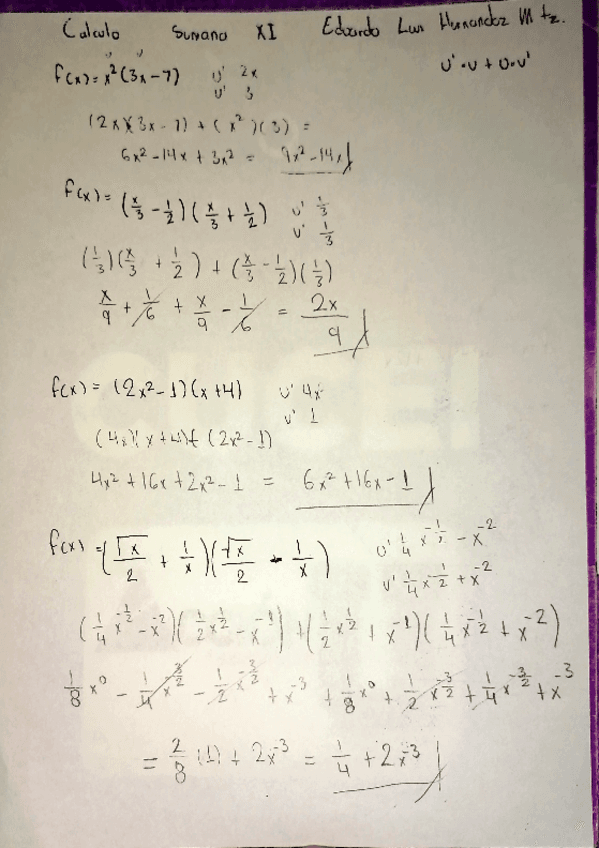 Calculo Semana XI Eduardo Luis Hernandez Mtz.
u v
f(x) = x²(3x-7) u' 2x u'·v + v·v'
v' 3
(2x)(3x-7) + (x²)(3) =
6x² - 14x + 3x² = 9x² - 14x
f(x) = (x/3 - 1/2)(x/3 + 1/2) u' 1/3
v' 1/3
(1/3)(x/3 + 1/2) + (x/3 - 1/2)(1/3)
x/9 + 1/6 + x/9 - 1/6 = 2x/9
f(x) = (2x²-1)(x+4) u' 4x
v' 1
(4x)(x+4)+(2x²-1)
4x² + 16x + 2x² - 1 = 6x² + 16x - 1
f(x) = (√x/2 + 1/x)(√x/2 - 1/x) u' 1/4 x^-1/2 - x^-2
v' 1/4 x^-1/2 + x^-2
(1/4 x^-1/2 - x^-2)(1/2 x^1/2 - x^-1) + (1/2 x^1/2 + x^-1)(1/4 x^-1/2 + x^-2)
1/8 x⁰ - 1/4 x^-3/2 - 1/2 x^-3/2 + x^-3 + 1/8 x⁰ + 1/2 x^-3/2 + 1/4 x^-3/2 + x^-3
= 2/8 (1) + 2x^-3 = 1/4 + 2x^-3